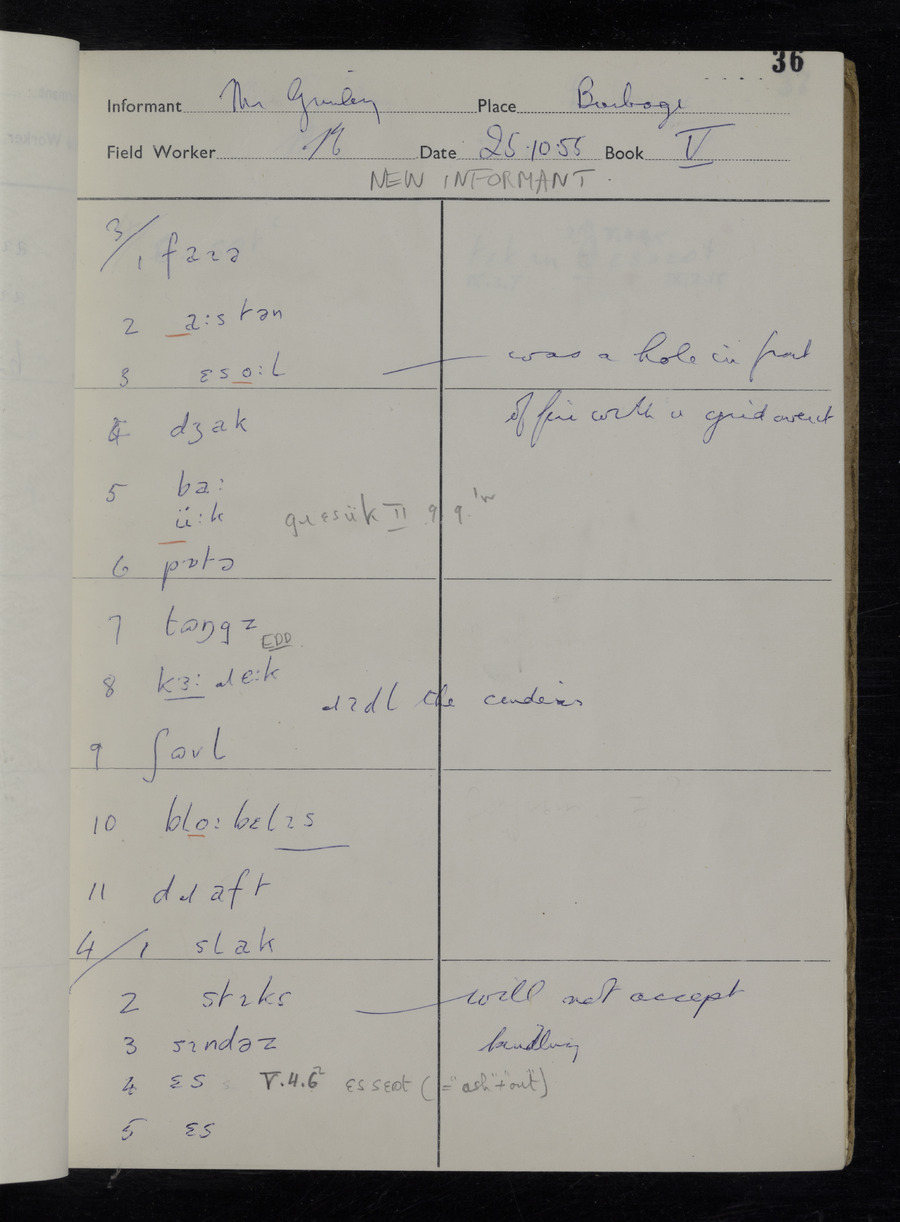 36
Informant Mr Place Burbage
Field Worker Date 25.10.55 Book V
NEW INFORMANT
3/1 faɪə
2 a:stən
3 ɛso:l — was a hole in front
of fire with a grid over it
4 dʒak
5 ba:
ü:k gɹɛsük II 9.9.
6 pɒtə
7 tɒŋgz EDD
8 kɜ: ɹɛ:k ɹɪdl the cinders
9 ʃɒvl
10 blo:bɛlɪs
11 dɹaft
4/1 slak
2 stɪks — will not accept
kindling
3 sɪndəz
4 ɛs V.4.6 ɛssɛɒt (="ash"+"out")
5 ɛs